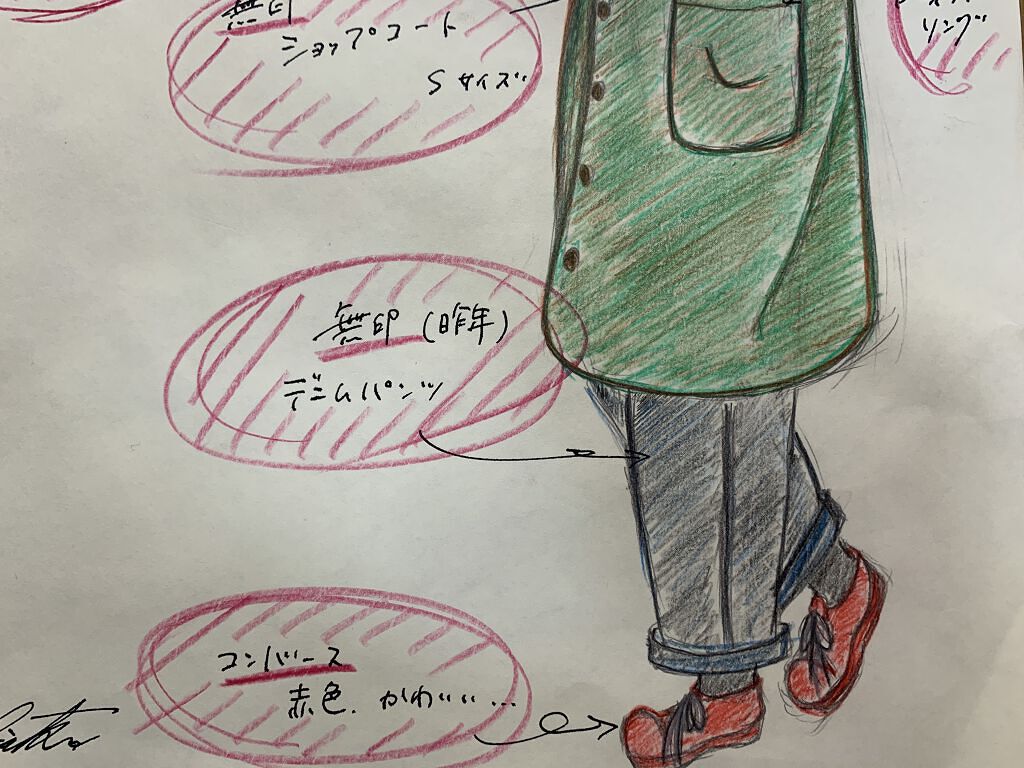 無印
ショップコート
Sサイズ
リング
無印(昨年)
デニムパンツ
コンバース
赤色.かわいい...